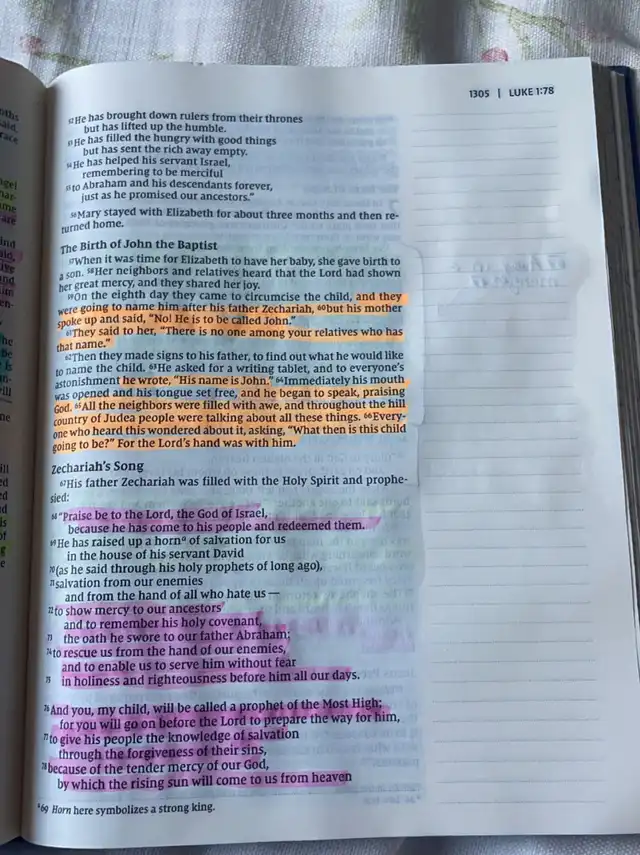 1305 | LUKE 1:78
52He has brought down rulers from their thrones
but has lifted up the humble.
53He has filled the hungry with good things
but has sent the rich away empty.
54He has helped his servant Israel,
remembering to be merciful
55to Abraham and his descendants forever,
just as he promised our ancestors.”
56Mary stayed with Elizabeth for about three months and then re-
turned home.
The Birth of John the Baptist
57When it was time for Elizabeth to have her baby, she gave birth to
a son. 58Her neighbors and relatives heard that the Lord had shown
her great mercy, and they shared her joy.
59On the eighth day they came to circumcise the child, and they
were going to name him after his father Zechariah, 60but his mother
spoke up and said, “No! He is to be called John.”
61They said to her, “There is no one among your relatives who has
that name.”
62Then they made signs to his father, to find out what he would like
to name the child. 63He asked for a writing tablet, and to everyone’s
astonishment he wrote, “His name is John.” 64Immediately his mouth
was opened and his tongue set free, and he began to speak, praising
God. 65All the neighbors were filled with awe, and throughout the hill
country of Judea people were talking about all these things. 66Every-
one who heard this wondered about it, asking, “What then is this child
going to be?” For the Lord’s hand was with him.
Zechariah’s Song
67His father Zechariah was filled with the Holy Spirit and prophe-
sied:
68“Praise be to the Lord, the God of Israel,
because he has come to his people and redeemed them.
69He has raised up a horna of salvation for us
in the house of his servant David
70(as he said through his holy prophets of long ago),
71salvation from our enemies
and from the hand of all who hate us —
72to show mercy to our ancestors
and to remember his holy covenant,
73 the oath he swore to our father Abraham:
74to rescue us from the hand of our enemies,
and to enable us to serve him without fear
75 in holiness and righteousness before him all our days.
76And you, my child, will be called a prophet of the Most High;
for you will go on before the Lord to prepare the way for him,
77to give his people the knowledge of salvation
through the forgiveness of their sins,
78because of the tender mercy of our God,
by which the rising sun will come to us from heaven
a69 Horn here symbolizes a strong king.